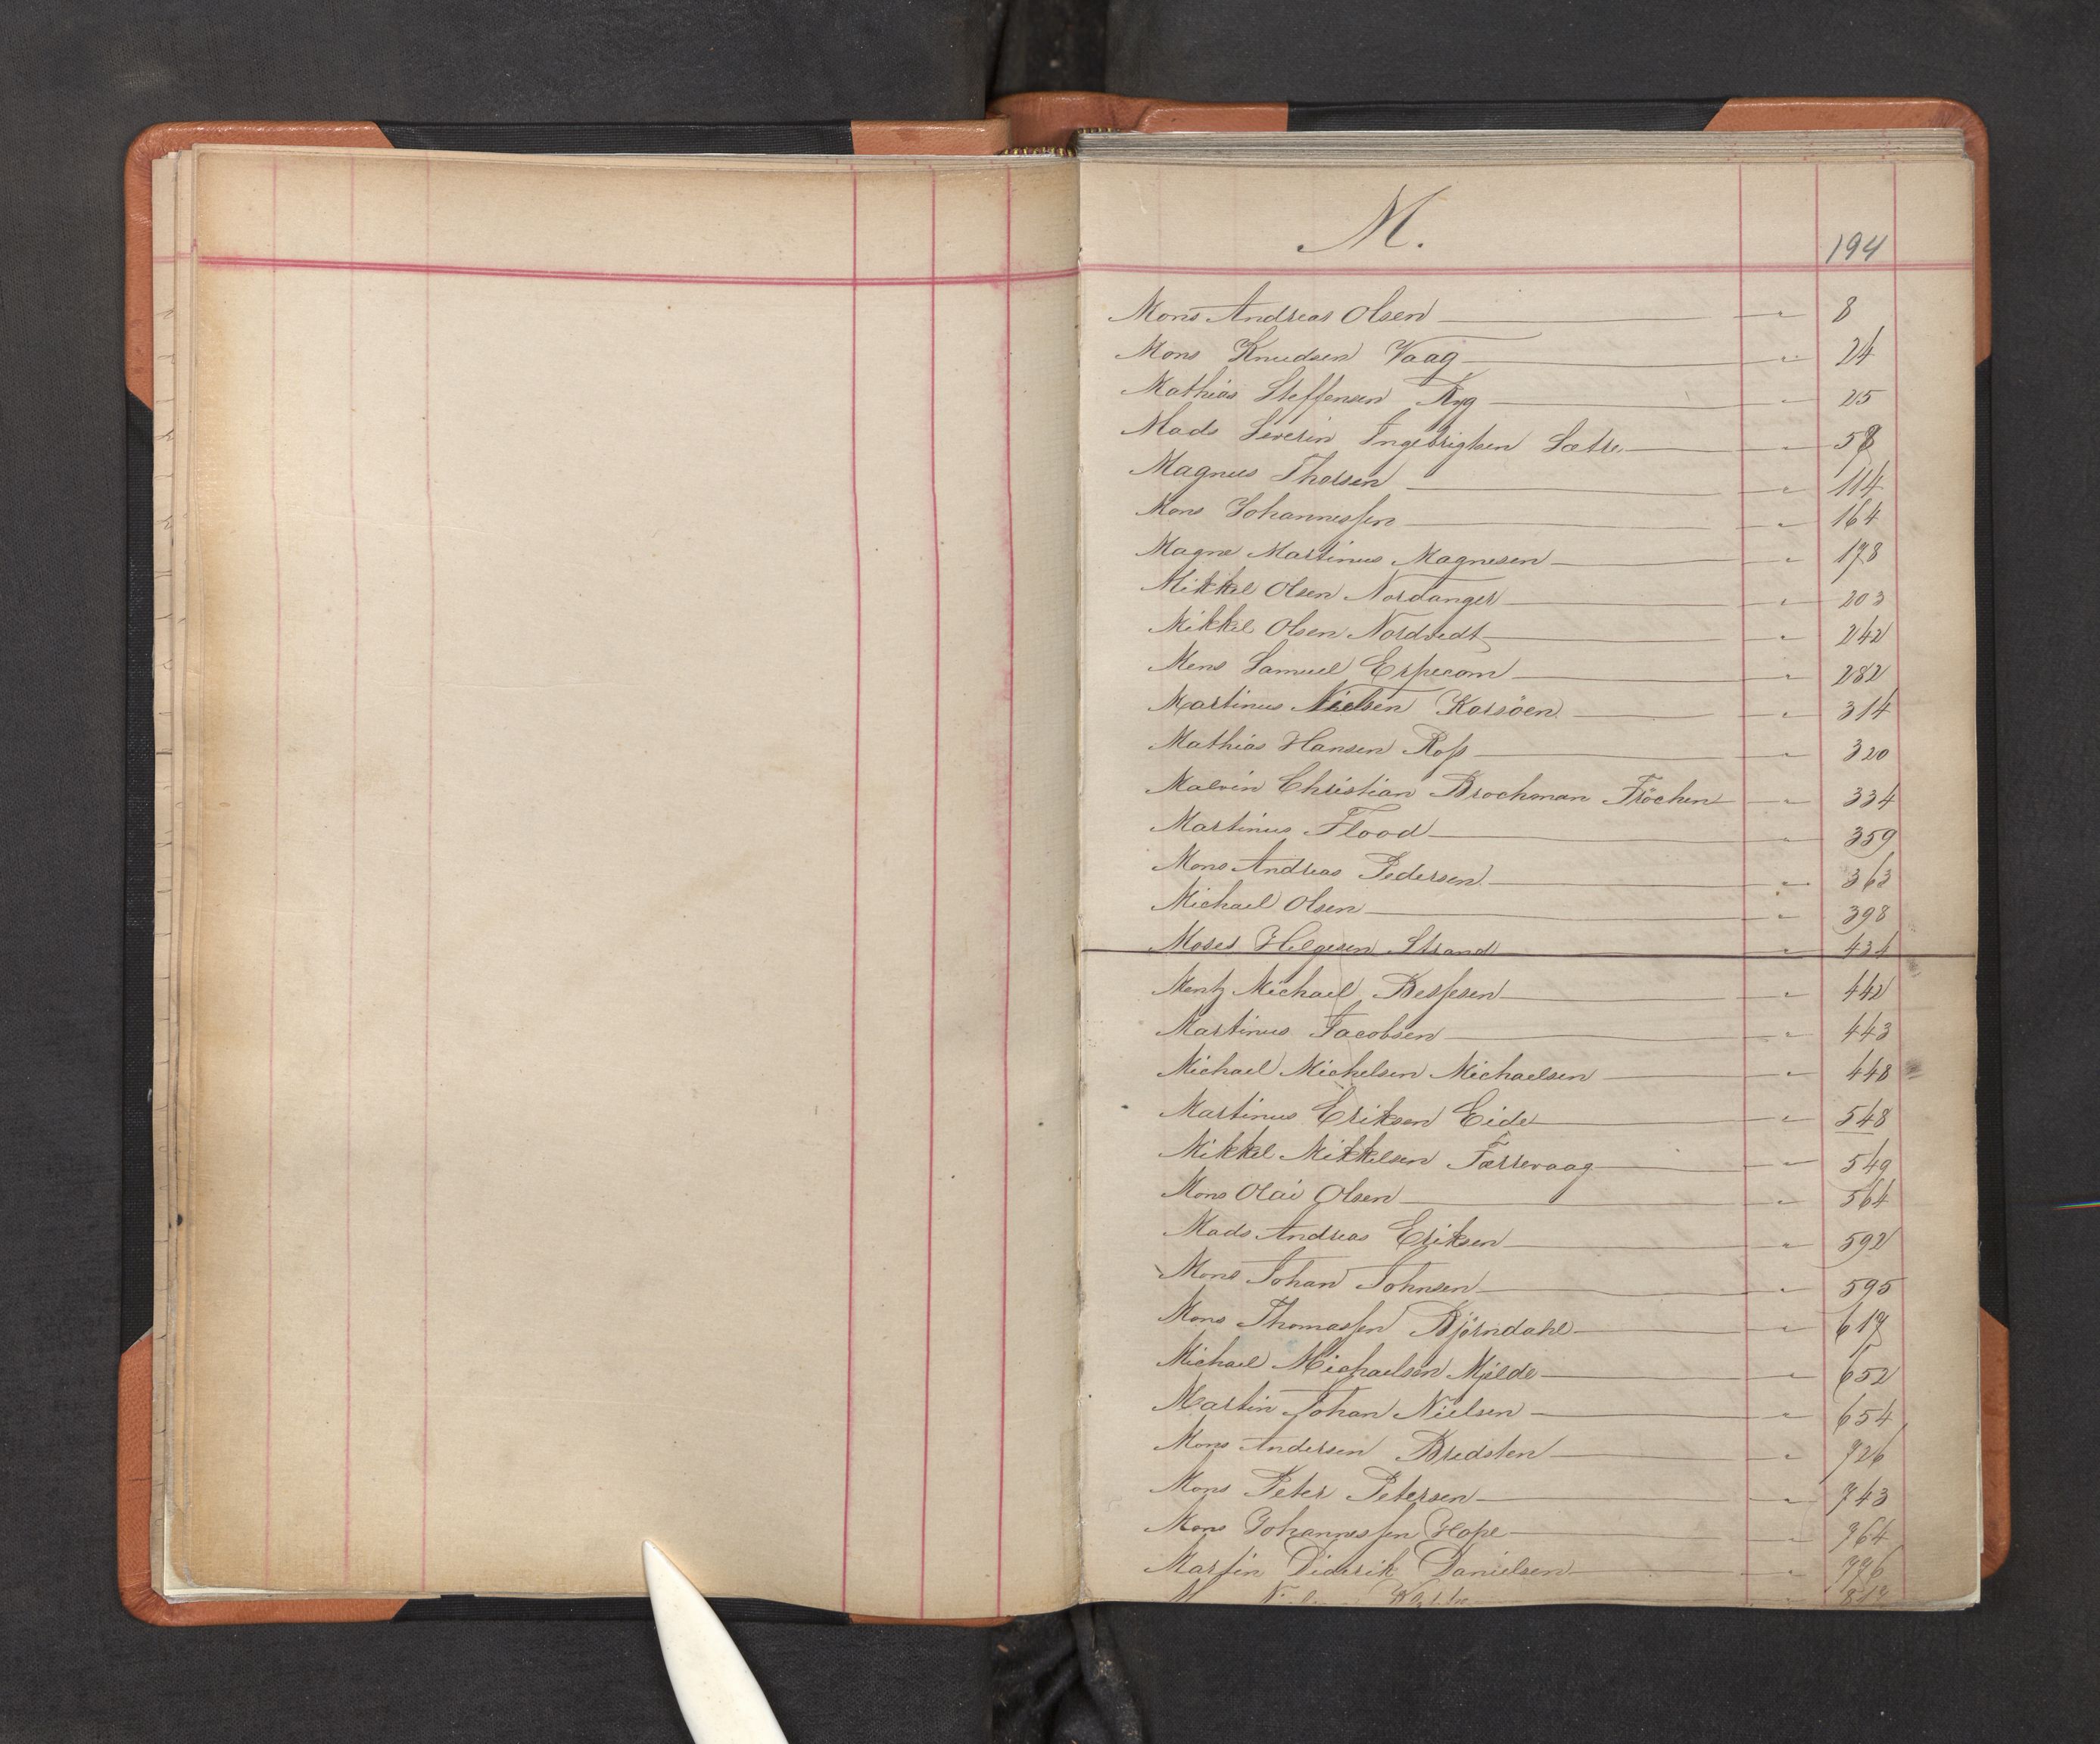 M.
194
Mons Andreas Olsen — " — 8
Mons Knudsen Vaag — " — 24
Mathias Steffensen Ryg — " — 25
Mads Severin Ingebrigtsen Sætre — " — 58
Magnus Thorsen — " — 114
Mons Johannessen — " — 164
Magne Martinus Magnesen — " — 178
Mikkel Olsen Nordanger — " — 203
Mikkel Olsen Nordvedt — " — 242
Mens Samuel Erpecom — " — 282
Martinus Nielsen Korsöen — " — 314
Mathias Hansen Ross — " — 320
Malvin Christian Brochman Fröchen — " — 334
Martinus Flood — " — 359
Mons Andreas Pedersen — " — 363
Michael Olsen — " — 398
Moses Helgesen Strand — " — 434
Mentz Michael Besfesen — " — 442
Martinus Jacobsen — " — 443
Michael Michelsen Michaelsen — " — 448
Martinus Eriksen Eide — " — 548
Mikkel Mikkelsen Færrevaag — " — 549
Mons Olai Olsen — " — 564
Mads Andreas Eriksen — " — 592
Mons Johan Johnsen — " — 595
Mons Thomassen Björndahl — " — 617
Michael Michaelsen Mjelde — " — 652
Martin Johan Nielsen — " — 654
Mons Andersen Bredsten — " — 726
Mons Peter Petersen — " — 743
Mons Johannessen Hope — " — 764
Martin Diderik Danielsen — " — 776